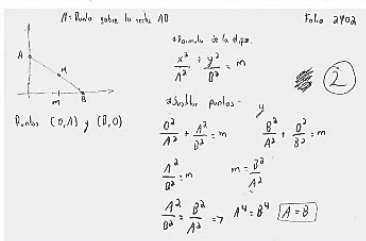 M: Punto sobre la recta AB
Folio 2402
A
M
m
B
Puntos (0,A) y (B,0)
Formula de la elipse.
x²/A² + y²/B² = m
2
Sustituir puntos:
0²/A² + A²/B² = m y B²/A² + 0²/B² = m
A²/B² = m m = B²/A²
A²/B² = B²/A² => A⁴ = B⁴ A = B